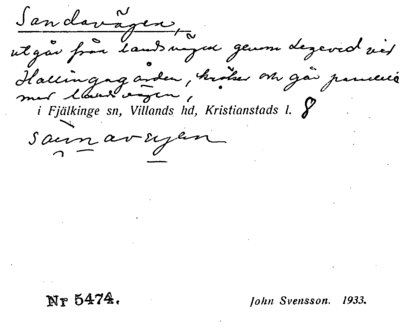 Sandavägen,
utgår från landsvägen genom Legeved vid
Hallingagården, kröker och går
med landsvägen,
i Fjälkinge sn, Villands hd, Kristianstads l. 8
Nr 5474.
John Svensson. 1933.